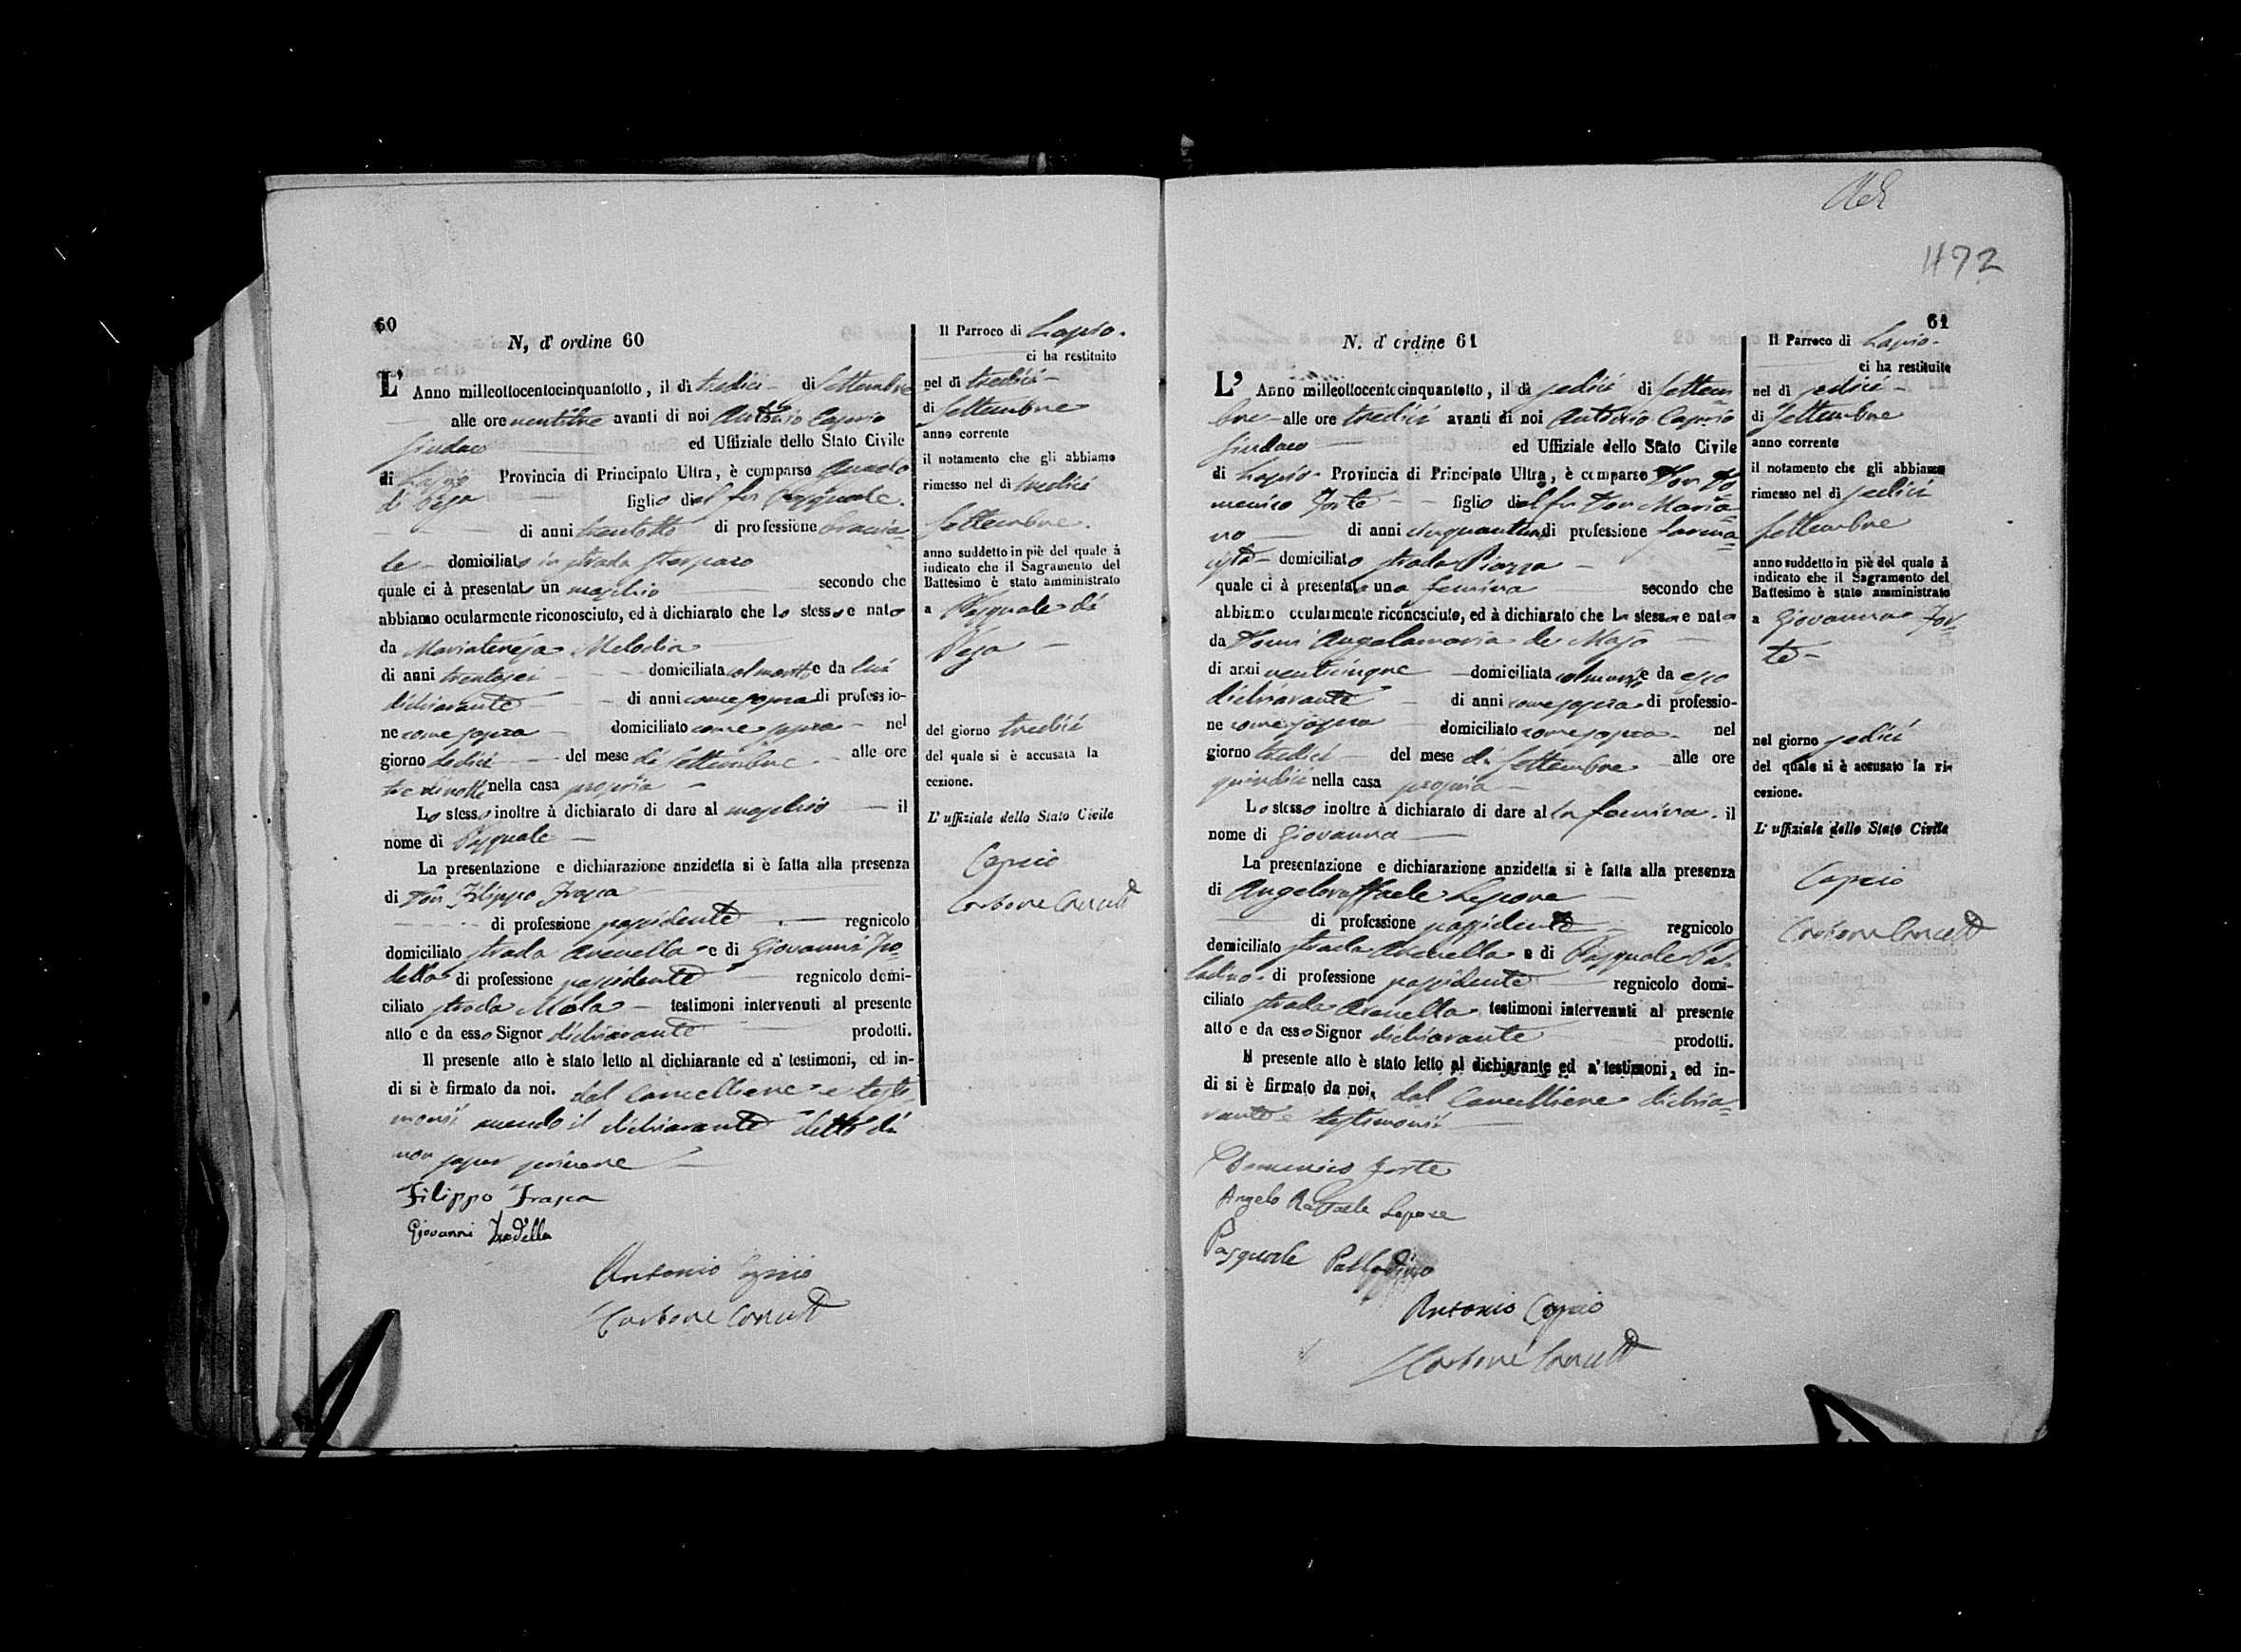 60
N, d' ordine 60
L' Anno milleottocentocinquantotto, il dì tredici di Settembre
alle ore ventitre avanti di noi Antonio Caprio
Sindaco ed Uffiziale dello Stato Civile
di Lapio Provincia di Principato Ultra, è comparso
di Pesa figlio del fu Pasquale
di anni trentotto di professione braccia=
le domiciliato in strada
quale ci à presentato un maschio secondo che
abbiamo ocularmente riconosciuto, ed à dichiarato che lo stesso e nato
da Mariateresa Melodia
di anni trentasei domiciliata col marito e da lui
dichiarante di anni come sopra di professio-
ne come sopra domiciliato come sopra nel
giorno dodici del mese di Settembre alle ore
tre di notte nella casa propria
Lo stesso inoltre à dichiarato di dare al maschio il
nome di Pasquale
La presentazione e dichiarazione anzidetta si è fatta alla presenza
di Don Filippo Frasca
di professione possidente regnicolo
domiciliato strada Avenella e di Giovanni Tro=
della di professione possidente regnicolo domi-
ciliato strada Mola testimoni intervenuti al presente
atto e da esso Signor dichiarante prodotti.
Il presente atto è stato letto al dichiarante ed a' testimoni, ed in-
di si è firmato da noi. dal Cancelliere e testi
monii avendo il dichiarante detto di
non saper scrivere
Filippo Frasca
Giovanni Trodella
Antonio Caprio
Carbone Cancell
Il Parroco di Lapio.
ci ha restituito
nel dì tredici
di Settembre
anno corrente
il notamento che gli abbiamo
rimesso nel dì tredici
Settembre.
anno suddetto in piè del quale à
indicato che il Sagramento del
Battesimo è stato amministrato
a Pasquale di
Pesa
del giorno tredici
del quale si è accusata la
cezione.
L' uffiziale dello Stato Civile
Caprio
Carbone Cancell
472
61
N. d' ordine 61
L' Anno milleottocentocinquantotto, il dì sedici di Settem
bre alle ore tredici avanti di noi Antonio Caprio
Sindaco ed Uffiziale dello Stato Civile
di Lapio Provincia di Principato Ultra, è comparso Don Do
menico Forte figlio del fu Don Maria=
no di anni cinquantuno di professione farma=
cista domiciliato strada Piazza
quale ci à presentata una femina secondo che
abbiamo ocularmente riconosciuto, ed à dichiarato che La stessa e nata
da Donn' Angelamaria de Maso
di anni venticinque domiciliata col marito e da esso
dichiarante di anni come sopra di professio-
ne come sopra domiciliato come sopra nel
giorno tredici del mese di Settembre alle ore
quindici nella casa propria
Lo stesso inoltre à dichiarato di dare al la femina il
nome di Giovanna
La presentazione e dichiarazione anzidetta si è fatta alla presenza
di Angeloraffaele Lepore
di professione possidente regnicolo
domiciliato strada Avenella e di Pasquale Pal=
ladino di professione possidente regnicolo domi-
ciliato strada Avenella testimoni intervenuti al presente
atto e da esso Signor dichiarante prodotti.
Il presente atto è stato letto al dichiarante ed a' testimoni, ed in-
di si è firmato da noi, dal Cancelliere dichia=
rante e testimonii
Domenico Forte
Angelo Raffaele Lepore
Pasquale Palladino
Antonio Caprio
Carbone Cancell
Il Parroco di Lapio
ci ha restituito
nel dì sedici
di Settembre
anno corrente
il notamento che gli abbiamo
rimesso nel dì sedici
Settembre
anno suddetto in piè del quale à
indicato che il Sagramento del
Battesimo è stato amministrato
a Giovanna For=
te
nel giorno sedici
del quale si è accusato la ri-
cezione.
L' uffiziale dello Stato Civile
Caprio
Carbone Cancell